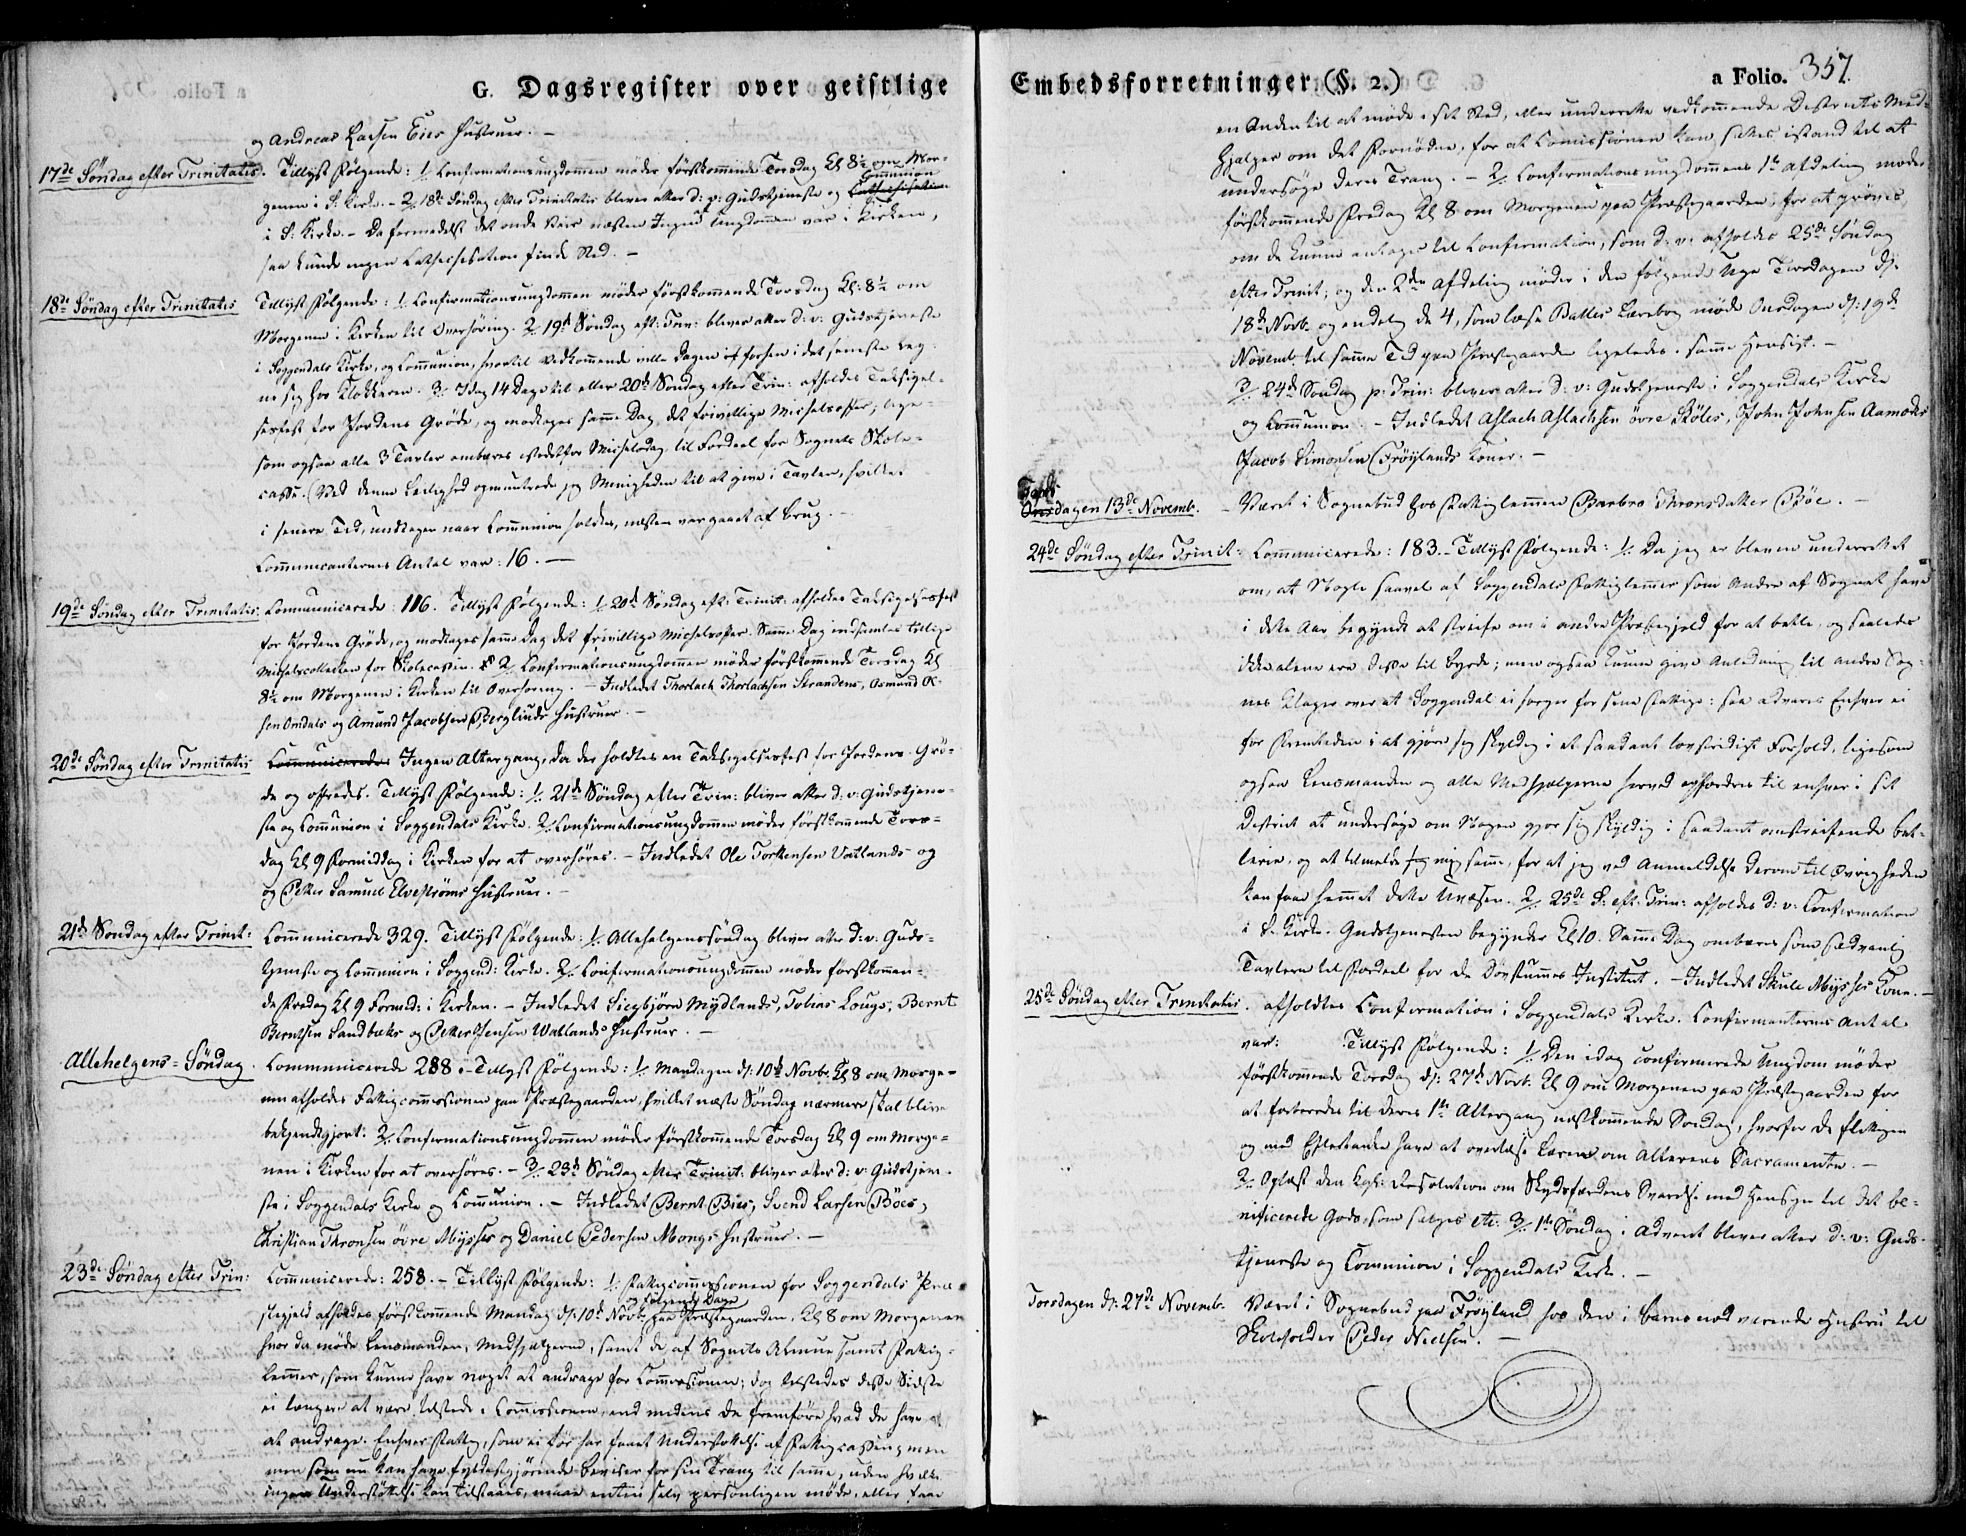 G. Dagsregister over geistlige
og Andreas Larsen Eies Hustruer. -
17de Søndag efter Trinitatis. Tillyst Følgende: 1/. Confirmationsungdommen møder førstkommende Torsdag Kl 8½ om Mor-
genen i S. Kirke. - 2/. 18de Søndag efter Trinitatis bliver atter d: v: Gudstjeneste og Cathechisation Communion
i S. Kirke. - Da formedelst det onde Veir næsten Ingen Ungdommen var i Kirken,
saa kunde ingen Cathechisation finde Sted. -
18de Søndag efter Trinitatis Tillyst Følgende: 1/. Confirmationsungdommen møder førstkommende Torsdag Kl: 8½ om
Morgenen i Kirken til Overhøring. 2/. 19de Søndag eft: Trin: bliver atter d: v: Gudstjeneste
i Soggendals Kirke, og Communion, hvortil Vedkommende ville Dagen forhen i det seneste teg-
ne sig hos Klokkeren. 3/. Idag 14 Dage til eller 20de Søndag efter Trin: afholdes Taksigel-
sesfest for Jordens Grøde, og modtages samme Dag det frivillige Michelsoffer; lige-
som ogsaa alle 3 Tavler ombæres istedetfor Michelsdag til Fordeel for Sognets Skole-
casse. (Ved denne Leilighed opmuntrede jeg Menigheden til at give i Tavlen, hvilket
i senere Tid, undtagen naar Communion holdes, næsten var gaaet af Brug. -
Communicanternes Antal var: 16. -
19de Søndag efter Trinitatis: Communicerede: 116. Tillyst Følgende: 1/. 20de Søndag eft: Trinit: afholdes Taksigelsesfest
for Jordens Grøde, og modtages samme Dag det frivillige Michelsoffer. Samme Dag indsamles tillige
Michelscollecten for Skolecassen. 2/. Confirmationsungdommen møder førstkommende Torsdag Kl
8½ om Morgenen i Kirken til Overhøring. - Indledet Thorlach Thorlachsen Strandens, Osmund Ol-
sen Omdals og Amund Jacobsen Berglunds Hustruer. -
20de Søndag efter Trinitatis Communicerede: Ingen Altergang, da der holdtes en Taksigelsesfest for Jordens Grø-
de og offredes. Tillyst Følgende: 1/. 21de Søndag efter Trin: bliver atter d: v: Gudstjene-
ste og Communion i Soggendals Kirke. 2/. Confirmationsungdommen møder førstkommende Tors-
dag Kl 9 Formiddag i Kirken for at overhøres. - Indledet Ole Torkensen Vatlands og
og Petter Samuel Elvestrøms Hustruer. -
21de Søndag efter Trinit: Communicerede 329. Tillyst Følgende: 1/. Allehelgenssøndag bliver atter d: v: Guds-
tjeneste og Communion i Soggend: Kirke. 2/. Confirmationsungdommen møder førstkommen-
de Fredag Kl 9 Formid: i Kirken. - Indledet Siegbjørn Mydlands, Tobias Lougs, Bernt
Berntsen Sandbæks og Petter Jensen Watlands Hustruer. -
Allehelgens-Søndag. Communicerede 288. - Tillyst Følgende: 1/. Mandagen d/: 10de Novbr. Kl 8 om Morge-
nen afholdes Fattigcommissionen paa Præstegaarden, hvilket næste Søndag nærmere skal blive
bekjendtgjort: 2/. Confirmationsungdommen møder førstkommende Torsdag Kl 9 om Morge-
nen i Kirken for at overhøres. - 3/. 23de Søndag efter Trinit: bliver atter d: v: Gudstjene-
ste i Soggendals Kirke og Communion. - Indledet Bernt Bies, Svend Larsen Böes,
Christian Thronsen øvre Mysses og Daniel Pedersen Mongs Hustruer. -
23de Søndag efter Trin: Communicerede: 258. - Tillyst Følgende: 1/. Fattigcommissionen for Soggendals Præ-
stegjeld afholdes førstkommende Mandag d/: 10de Novbr. og følgende Dage paa Præstegaarden, Kl 8 om Morgenen
hvor da møde Lensmanden, Medhjælperne, samt de af Sognets Almue samt Fattig-
lemmer, som kunne have noget at andrage for Commissionen; dog tilstedes disse Sidste
ei længere at være tilstede i Commissionen, end medens de fremføre hvad de have
at andrage. Enhver Fattig, som ei før har faaet Understøttelse af Fattigcassen, men
men som nu kan have fyldestgjørende Beviser for sin Trang til samme, uden hvilke
ingen Understøttelse kan tilstaaes, maae enten selv personligen møde, eller faae
Embedsforretninger (§. 2.) a Folio. 357.
en Anden til at møde i sit Sted, eller underrette vedkommende Districts Med-
hjælper om det Fornødne, for at Commissionen kan sættes istand til at
undersøge deres Trang. - 2/. Confirmationsungdommens 1te Afdeling møder
førstkommende Fredag Kl 8 om Morgenen paa Præstegaarden, for at prøves,
om de kunne antages til Confirmation, som d: v: afholdes 25de Søndag
efter Trinit; og den 2den Afdeling møder i den følgende Uge Tirsdagen d/:
18de Novbr. og endelig de 4, som læse Balles Lærebog møde Onsdagen d/: 19de
Novemb. til samme Tid paa Præstegaarden ligeledes i samme Hensigt. -
3/. 24de Søndag p: Trin: bliver atter d: v: Gudstjeneste i Soggendals Kirke
og Communion. - Indledet Aslach Aslachsen øvre Skøles, John Johnsen Aamodts
Jacob Simonsen Frøylands Koner. -
Torsdagen 13de Novemb. - Været i Sognebud hos Fattiglemmen Barbro Thronsdatter Bøe. -
24de Søndag efter Trinit: Communicerede: 183. - Tillyst Følgende: 1/. Da jeg er bleven underrettet
om, at Nogle saavel af Soggendals Fattiglemmer som Andre af Sognet have
i dette Aar begyndt at streife om i andre Præstegjeld for at betle, og saaledes
ikke alene ere disse til Byrde; men ogsaa kunne give Anledning til andre Sog-
nes Klager over at Soggendal ei sørger for sine Fattige: saa advares Enhver ei
for Fremtiden i at gjøre sig skyldig i et saadant lovstridigt Forhold, ligesom
ogsaa Lensmanden og alle Medhjælperne herved opfordres til enhver i sit
District at undersøge om Nogen gjør sig skyldig i saadant omstreifende Bet-
lerie, og at tilmelde mig samme, for at jeg ved Anmeldelse derom til Øvrigheden
kan faae hemmet dette Uvæsen. 2/. 25de S: eft: Trin: afholdes d: v: Confirmation
i S. Kirke. Gudstjenesten begynder Kl 10. Samme Dag ombæres som sædvanlig
Tavlen til Fordeel for de Døvstummes Institut. - Indledet Skule Mysses Kone. -
25de Søndag efter Trinitatis. afholdtes Confirmation i Soggendals Kirke. Confirmanternes Antal
var: Tillyst Følgende: 1/. Den idag confirmerede Ungdom møder
førstkommende Torsdag d/: 27de Novbr. Kl 9 om Morgenen paa Præstegaarden for
at forberedes til deres 1te Altergang næstkommende Søndag, hvorfor de flittigen
og med Eftertanke have at overlæse Læren om Alterens Sacramente. -
2/. Oplæst den Kgl: Resolution om Skydsfærdens Svarelse med Hensyn til det be-
neficerede Gods, som sælges etc. 3/. 1te Søndag i Advent bliver atter d: v: Guds-
tjeneste og Communion i Soggendals Kirke. -
Torsdagen d/: 27de Novemb. Været i Sognebud paa Frøyland hos den i Barnsnød værende Hustru til
Skoleholder Peder Nielsen. -